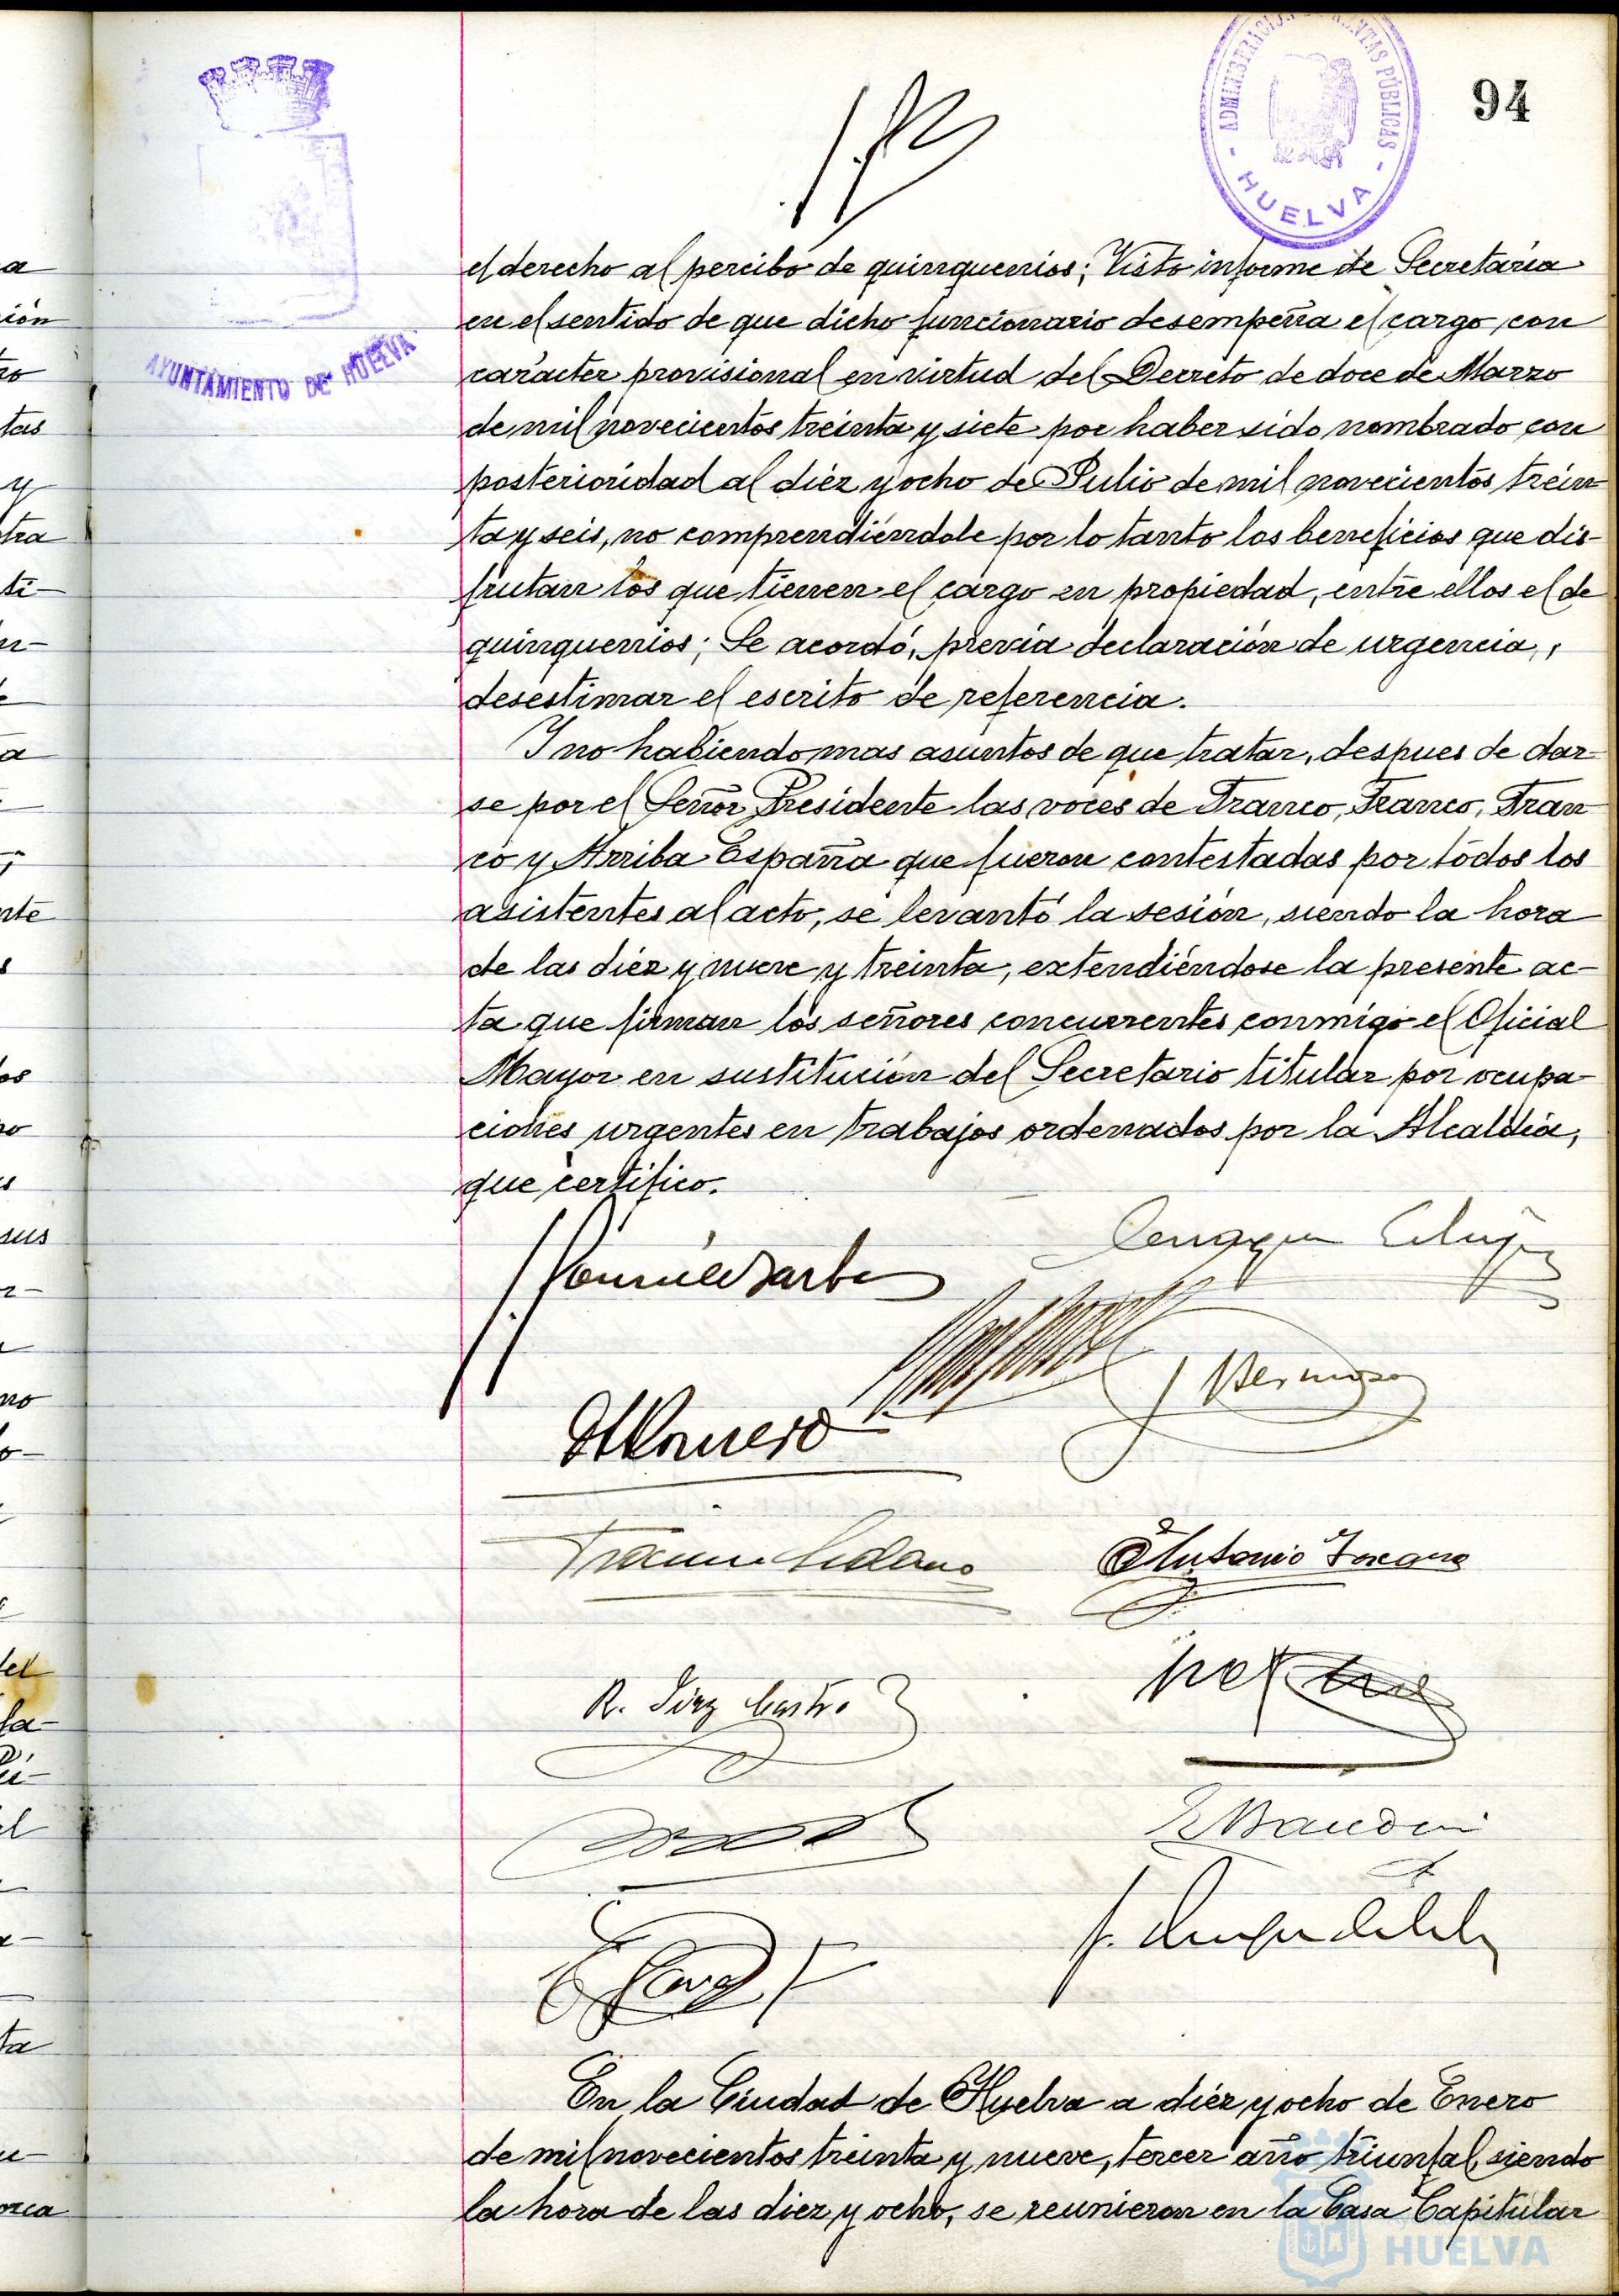 94
ADMINISTRACIÓN DE RENTAS PÚBLICAS
- HUELVA -
AYUNTAMIENTO DE HUELVA
el derecho al percibo de quinquenios; Visto informe de Secretaría
en el sentido de que dicho funcionario desempeña el cargo con
carácter provisional en virtud del Decreto de doce de Marzo
de mil novecientos treinta y siete por haber sido nombrado con
posterioridad al diéz y ocho de Julio de mil novecientos trein
ta y seis, no comprendiéndole por lo tanto los beneficios que dis-
frutan los que tienen el cargo en propiedad, entre ellos el de
quinquenios; Se acordó, previa declaración de urgencia,
desestimar el escrito de referencia.
Y no habiendo mas asuntos de que tratar, despues de dar-
se por el Señor Presidente las voces de Franco, Franco, Fran
co y Arriba España que fueron contestadas por todos los
asistentes al acto, se levantó la sesión, siendo la hora
de las diéz y nueve y treinta, extendiéndose la presente ac-
ta que firman los señores concurrentes conmigo el Oficial
Mayor en sustitución del Secretario titular por ocupa-
ciones urgentes en trabajos ordenados por la Alcaldía,
que certifico.
Romero
Antonio Toscano
R. Diaz Castro
En la Ciudad de Huelva a diéz y ocho de Enero
de mil novecientos treinta y nueve, tercer año triunfal, siendo
la hora de las diez y ocho, se reunieron en la Casa Capitular
HUELVA